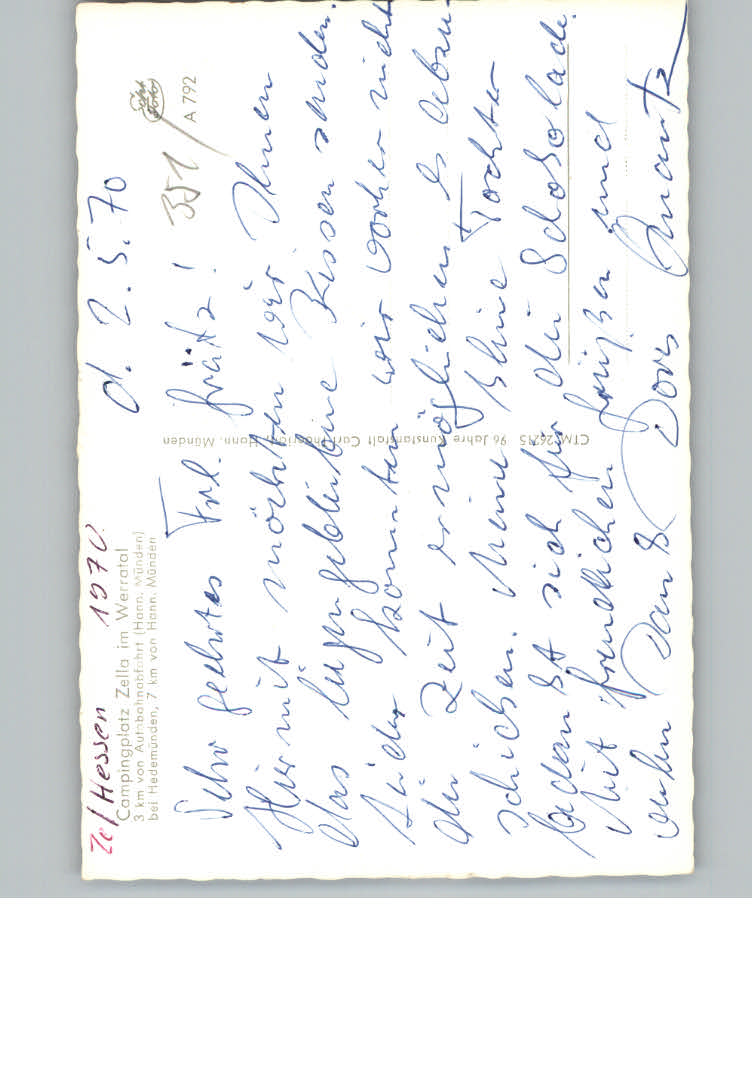 Zel/Hessen 1970
Campingplatz Zella im Werratal
3 km von Autobahnabfahrt (Hann. Münden)
bei Hedemünden, 7 km von Hann. Münden
d. 2.5.70
351/
A 792
CTM 26215 96 Jahre Kunstanstalt Carl Thoericht, Hann. Münden
Sehr geehrtes Frl. Grätz!
Hiermit möchten wir Ihnen
das liegengebliebene Kissen senden.
Leider konnten wir vorher nicht
die Zeit ermöglichen es abzu-
schicken. Meine kleine Tochter
bedankt sich für die Schokolade.
Mit freundlichen Grüßen und
vielen Dank Doris